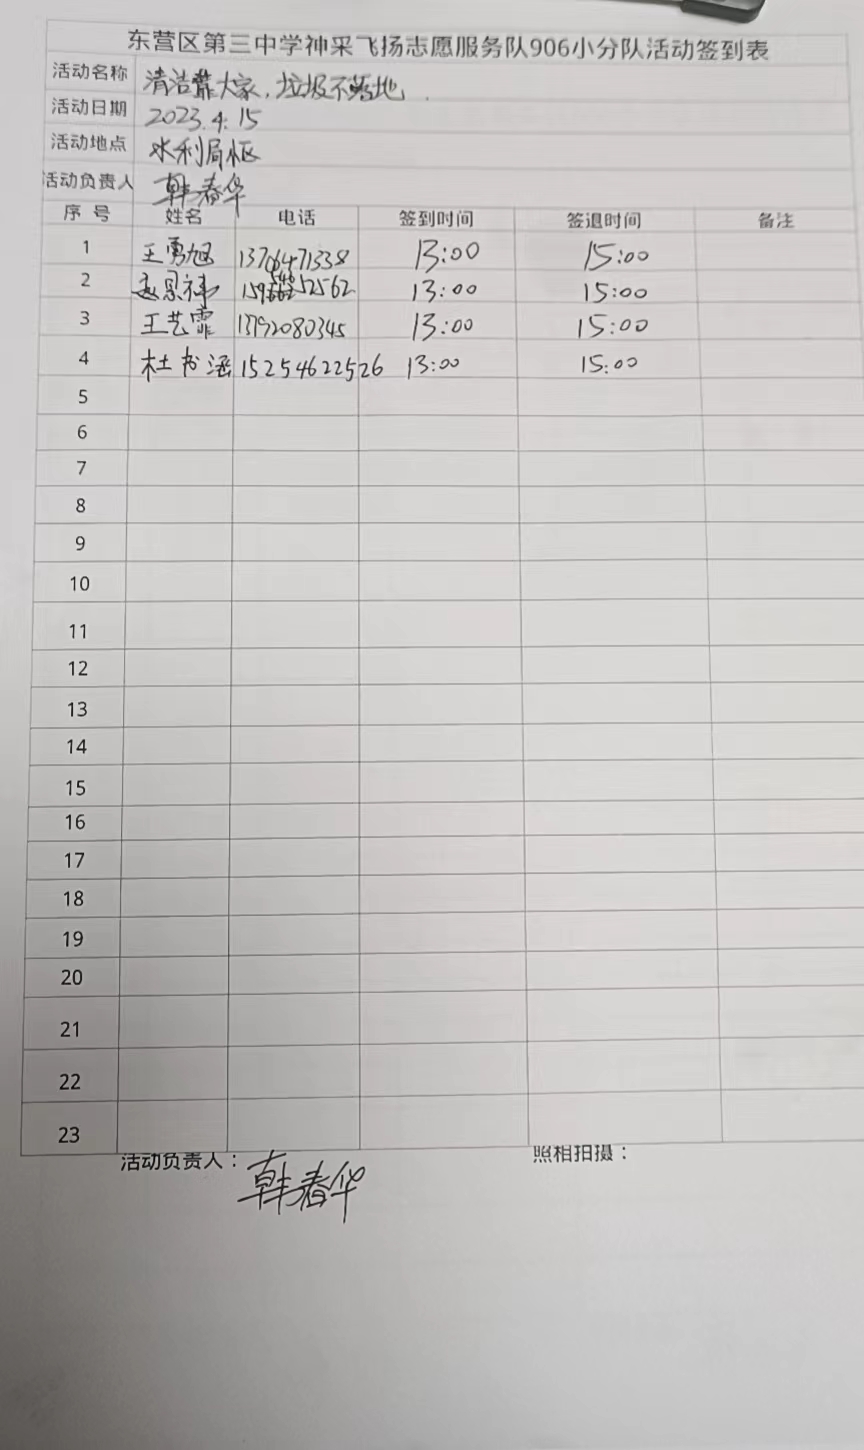 东营区第三中学神采飞扬志愿服务队906小分队活动签到表
活动名称 清洁靠大家，垃圾不落地．
活动日期 2023.4.15
活动地点 水利局
活动负责人 韩春华
序号 姓名 电话 签到时间 签退时间 备注
1 王勇旭 13706471338 13:00 15:00
2 赵恩祎 13:00 15:00
3 王艺霏 13792080345 13:00 15:00
4 杜书涵 15254622526 13:00 15:00
5
6
7
8
9
10
11
12
13
14
15
16
17
18
19
20
21
22
23
活动负责人：韩春华 照相拍摄：